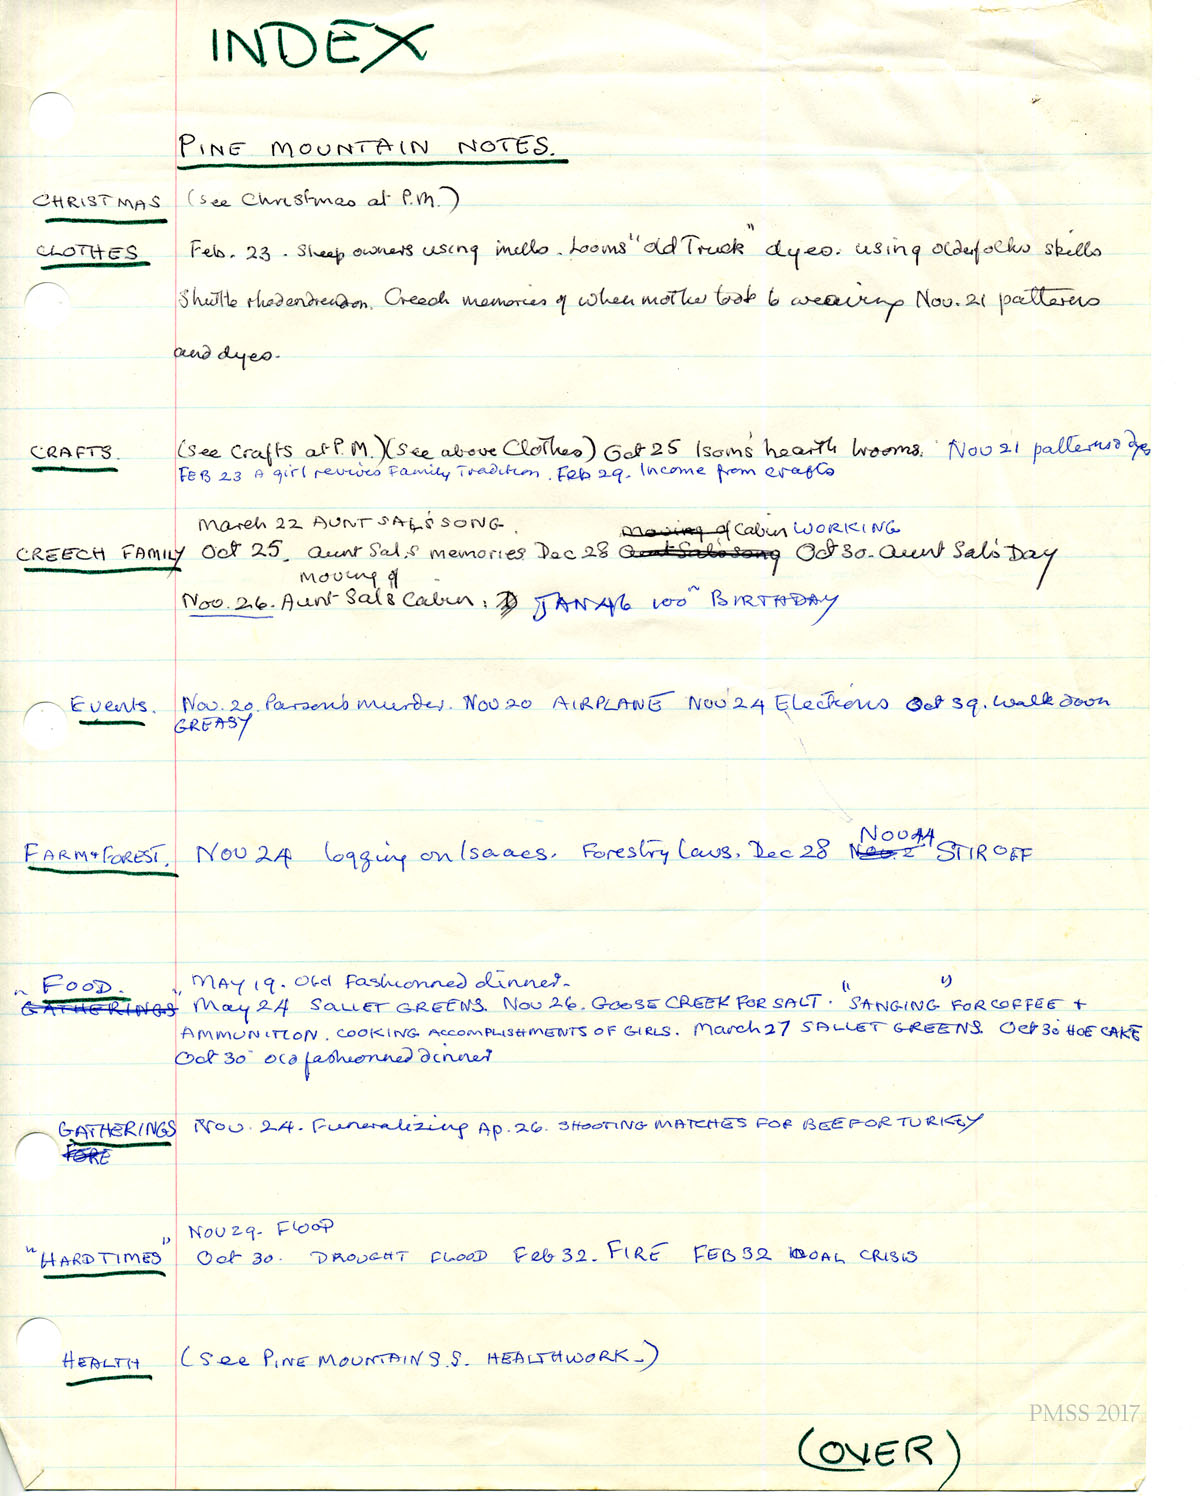 INDEX
PINE MOUNTAIN NOTES.
CHRISTMAS (see Christmas at P.M.)
CLOTHES Feb. 23. Sheep owners using mills. Looms "old Truck" dyes. using olderfolks skills
Shuttle rhodendrendon. Creech memories of when mother took to weaving Nov. 21 patterns
and dyes.
CRAFTS. (see Crafts at P.M.) (See above Clothes) Oct 25 Isom's hearth brooms. Nov 21 patterns dyes
FEB 23 A girl revives Family Tradition. Feb 29. Income from crafts
March 22 AUNT SAL'S SONG. Moving of Cabin WORKING
CREECH FAMILY Oct 25. Aunt Sal's memories Dec 28 Aunt Sal's song Oct 30 - Aunt Sal's Day
moving of
Nov. 26. Aunt Sal's Cabin. JAN 46 100th BIRTHDAY
Events. Nov. 20. Parson's murder. Nov 20 AIRPLANE Nov 24 Elections Oct 39. walk down
GREASY
NOV 44
FARM & FOREST. NOV 24 logging on Isaacs. Forestry Laws. Dec 28 Nov. 2 STIR OFF
FOOD. MAY 19. Old fashionned dinner.
"GATHERINGS" May 24 SALLET GREENS. Nov 26. GOOSE CREEK FOR SALT. "SANGING" FOR COFFEE +
AMMUNITION. COOKING ACCOMPLISHMENTS OF GIRLS. March 27 SALLET GREENS. Oct 30 HOE CAKE
Oct 30 old fashionned dinner
GATHERINGS Nov. 24. Funeralizing Ap. 26. SHOOTING MATCHES FOR BEEF OR TURKEY
FORE
NOV 29. FLOOD
"HARD TIMES" Oct 30. DROUGHT FLOOD Feb 32. FIRE FEB 32 COAL CRISIS
HEALTH (See PINE MOUNTAIN S.S. HEALTH WORK.)
PMSS 2017
(OVER)